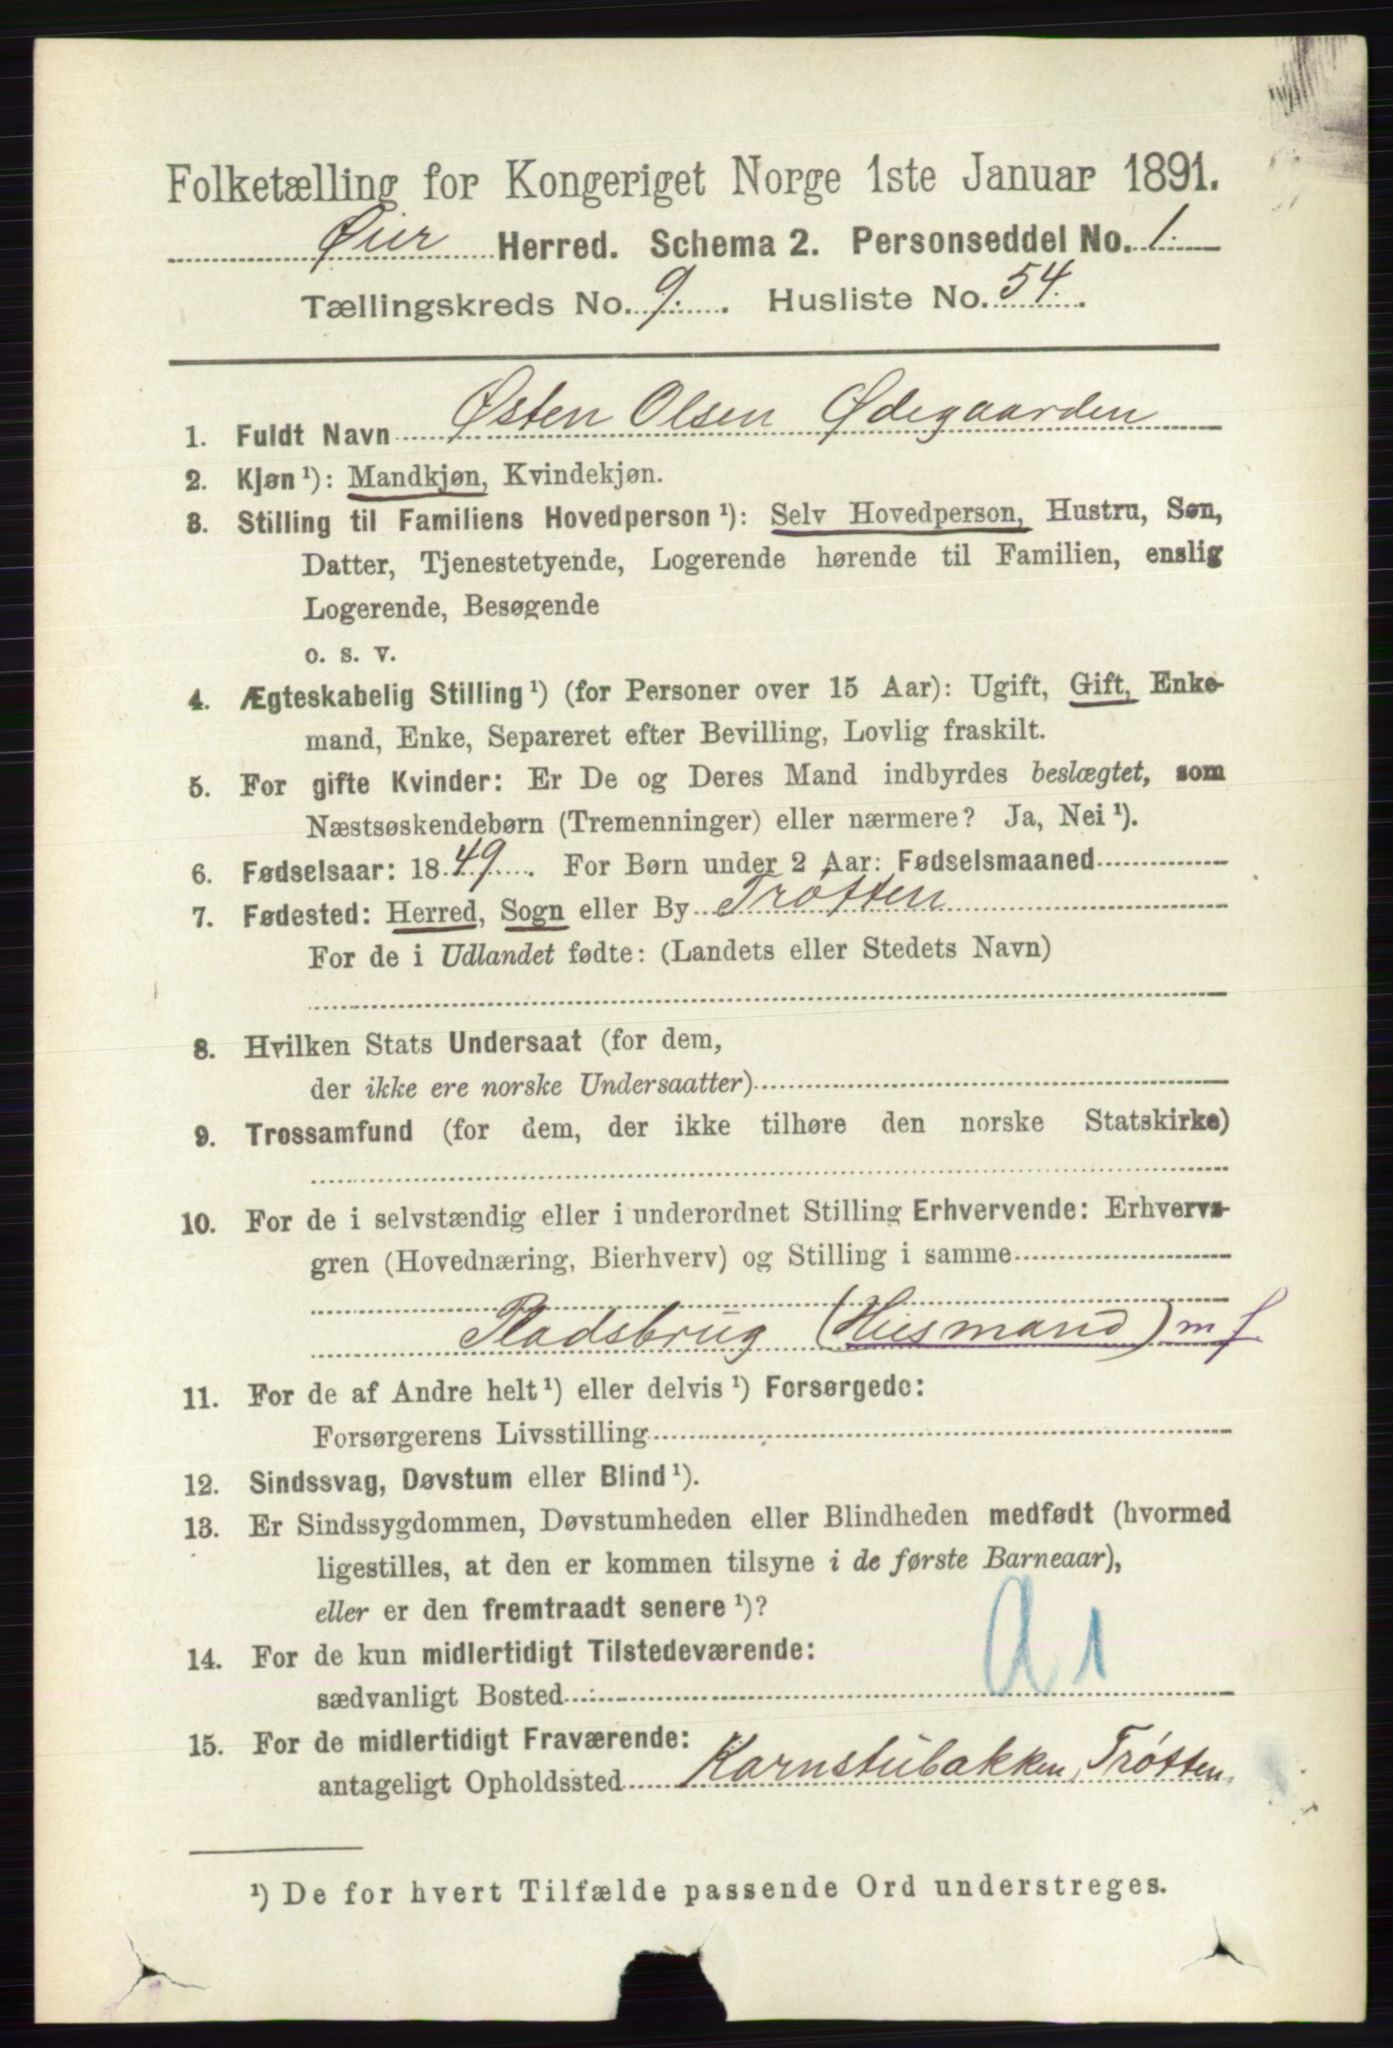 Folketælling for Kongeriget Norge 1ste Januar 1891.
Øier Herred. Schema 2. Personseddel No. 1.
Tællingskreds No. 9. Husliste No. 54.
1. Fuldt Navn Østen Olsen Ødegaarden
2. Kjøn ¹): Mandkjøn, Kvindekjøn.
3. Stilling til Familiens Hovedperson ¹): Selv Hovedperson, Hustru, Søn,
Datter, Tjenestetyende, Logerende hørende til Familien, enslig
Logerende, Besøgende
o. s. v.
4. Ægteskabelig Stilling ¹) (for Personer over 15 Aar): Ugift, Gift, Enke-
mand, Enke, Separeret efter Bevilling, Lovlig fraskilt.
5. For gifte Kvinder: Er De og Deres Mand indbyrdes beslægtet, som
Næstsøskendebørn (Tremenninger) eller nærmere? Ja, Nei ¹).
6. Fødselsaar: 1849. For Børn under 2 Aar: Fødselsmaaned
7. Fødested: Herred, Sogn eller By Trøtten
For de i Udlandet fødte: (Landets eller Stedets Navn)
8. Hvilken Stats Undersaat (for dem,
der ikke ere norske Undersaatter)
9. Trossamfund (for dem, der ikke tilhøre den norske Statskirke)
10. For de i selvstændig eller i underordnet Stilling Erhvervende: Erhvervs-
gren (Hovednæring, Bierhverv) og Stilling i samme
Pladsbrug (Husmand) m f
11. For de af Andre helt ¹) eller delvis ¹) Forsørgede:
Forsørgerens Livsstilling
12. Sindssvag, Døvstum eller Blind ¹).
13. Er Sindssygdommen, Døvstumheden eller Blindheden medfødt (hvormed
ligestilles, at den er kommen tilsyne i de første Barneaar),
eller er den fremtraadt senere ¹)?
A 1
14. For de kun midlertidigt Tilstedeværende:
sædvanligt Bosted
15. For de midlertidigt Fraværende:
antageligt Opholdssted Karnstubakken, Trøtten.
¹) De for hvert Tilfælde passende Ord understreges.